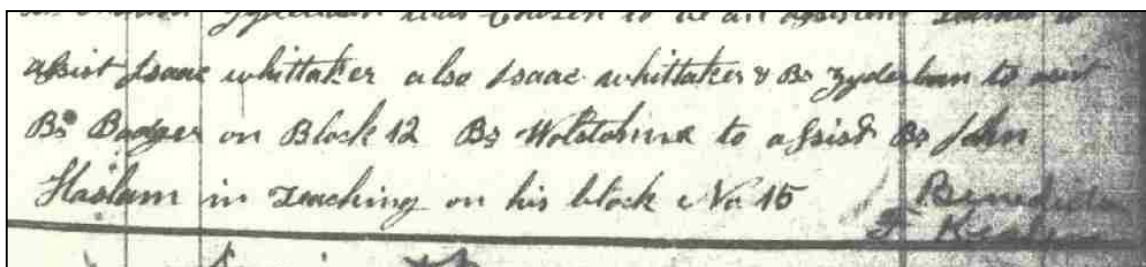 was Chosen to be an assistent
assist Isaac whittaker also Isaac whittaker & Br Zyderlaan to assist
Br Badger on Block 12 Br Wolstohnme to assist Br John
Haslam in Teaching on his block No 15 Benediction
F